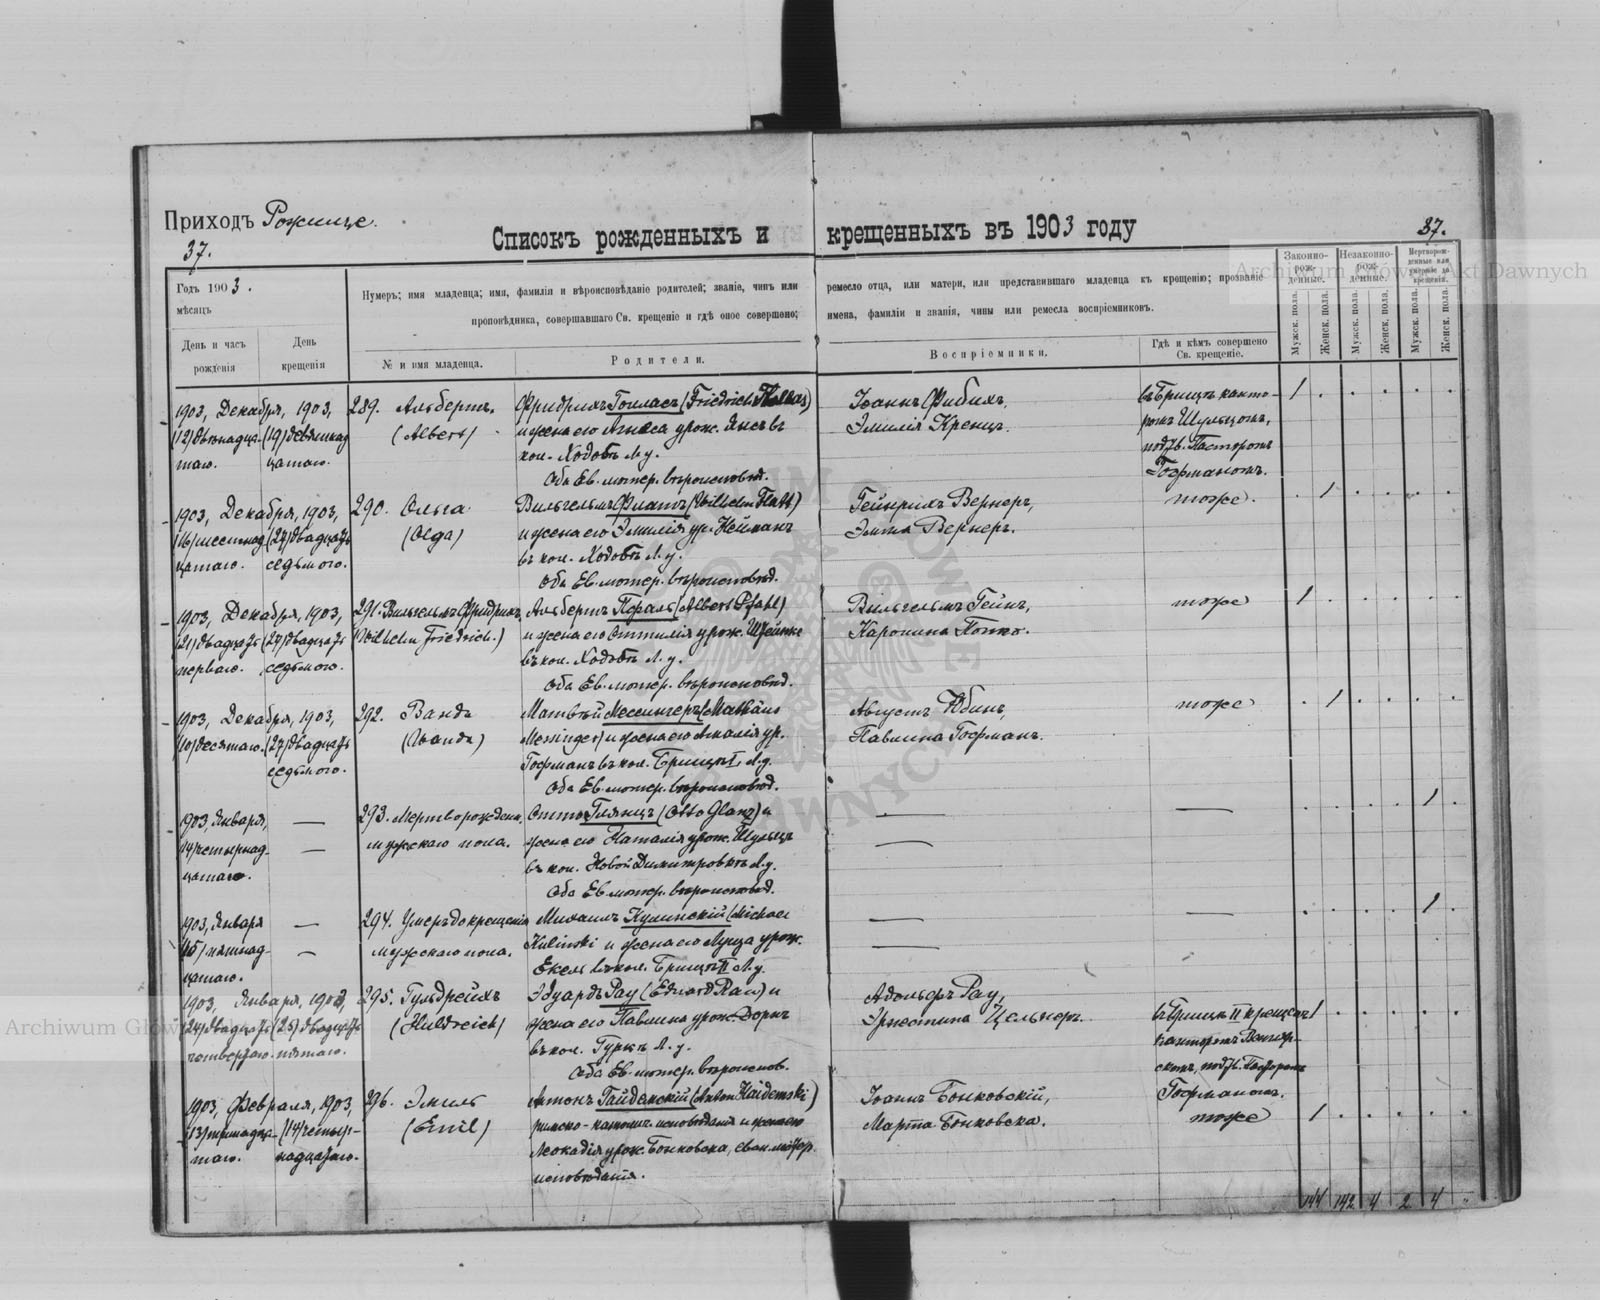 Приходъ Рожище.
37.
Списокъ рожденныхъ и крещенныхъ въ 1903 году
37.
Годъ 1903.
мѣсяцъ
День и часъ рожденія
День крещенія
Нумеръ; имя младенца; имя, фамилія и вѣроисповѣданіе родителей; званіе, чинъ или ремесло отца, или матери, или представившаго младенца къ крещенію; прозваніе
проповѣдника, совершавшаго Св. крещеніе и гдѣ оное совершено; имена, фамиліи и званія, чины или ремесла воспріемниковъ.
№ и имя младенца.
Родители.
Воспріемники.
Гдѣ и кѣмъ совершено Св. крещеніе.
Законно-рож-денные.
Незаконно-рож-денные.
Мертворож-денные или умершіе до крещенія.
Мужск. пола.
Женск. пола.
Мужск. пола.
Женск. пола.
Мужск. пола.
Женск. пола.
1903, Декабря, 1903, 289. Альбертъ. Фридрихъ Голласъ (Friedrich Hollas) Іоаннъ Фибихъ, въ Брищѣ канто- 1
(12) двѣнадца- (19) девятнад- (Albert) и жена его Агнеса урож. Янсъ въ Эмилія Кренцъ. ромъ Шульцомъ,
таго. цатаго. кол. Ходобъ Л. у. подтв. Пасторомъ
Оба Ев. лютер. вѣроисповѣд. Гофманомъ.
1903, Декабря, 1903, 290. Ольга Вильгельмъ Флатъ (Wilhelm Flatt) Гейнрихъ Вернеръ, тоже. 1
(16) шестнад- (27) двадцать (Olga) и жена его Эмилія ур. Нейманъ Эмма Вернеръ.
цатаго. седьмого. въ кол. Ходобъ Л. у.
Оба Ев. лютер. вѣроисповѣд.
1903, Декабря, 1903, 291. Вильгельмъ Фридрихъ Альбертъ Пфаль (Albert Pfahl) Вильгельмъ Гейнъ, тоже 1
(21) двадцать (27) двадцать (Wilhelm Friedrich.) и жена его Оттилія урож. Каролина
перваго. седьмого. въ кол. Ходобъ Л. у.
Оба Ев. лютер. вѣроисповѣд.
1903, Декабря, 1903, 292. Ванда Матвѣй Мессингеръ (Mathäus Августъ Юбинъ, тоже 1
(10) десятаго. (27) двадцать (Wanda) Messinger) и жена его Амалія ур. Павлина Гофманъ.
седьмого. Гофманъ въ кол. Брищѣ I, Л. у.
Оба Ев. лютер. вѣроисповѣд.
1903, Января, — 293. Мертворожден. Отто Глянцъ (Otto Glanz) и — 1
(14) четырнад- — мужскаго пола. жена его Наталія урож. Шульцъ —
цатаго. въ кол. Новой Димитровкѣ Л. у.
Оба Ев. лютер. вѣроисповѣд.
1903, Января — 294. Умеръ до крещенія Михаилъ Кулинскій (Michael — — 1
(15) пятнад- — мужскаго пола. Kulinski и жена его Луиза урож. —
цатаго. Екель въ кол. Брищѣ II Л. у.
1903, Января, 1903, 295. Гульдрейхъ Эдуардъ Рау (Eduard Rau) и Адольфъ Рау,
(24) двадцать (25) двадцать (Huldreich) жена его Павлина урож. Дорнъ Эрнестина Цельмеръ. въ Брищѣ II крещенъ 1
четвертаго. пятаго. въ кол. Гуркъ Л. у. канторомъ
Оба Ев. лютер. вѣроисповѣд. подтв. Пасторомъ
1903, Февраля, 1903, 296. Эмиль Антонъ Гайдемскій (Anton Haidemski) Іоаннъ Бонковскій, Гофманомъ.
(13) тринадца- (14) четыр- (Emil) римско-католич. исповѣданія и жена его Марта Бонковска. тоже 1
таго. надцатаго. Леокадія урож. Бонковска, еван. лютер.
исповѣданія.
144 142 4 2 4 "
Archiwum Główne Akt Dawnych